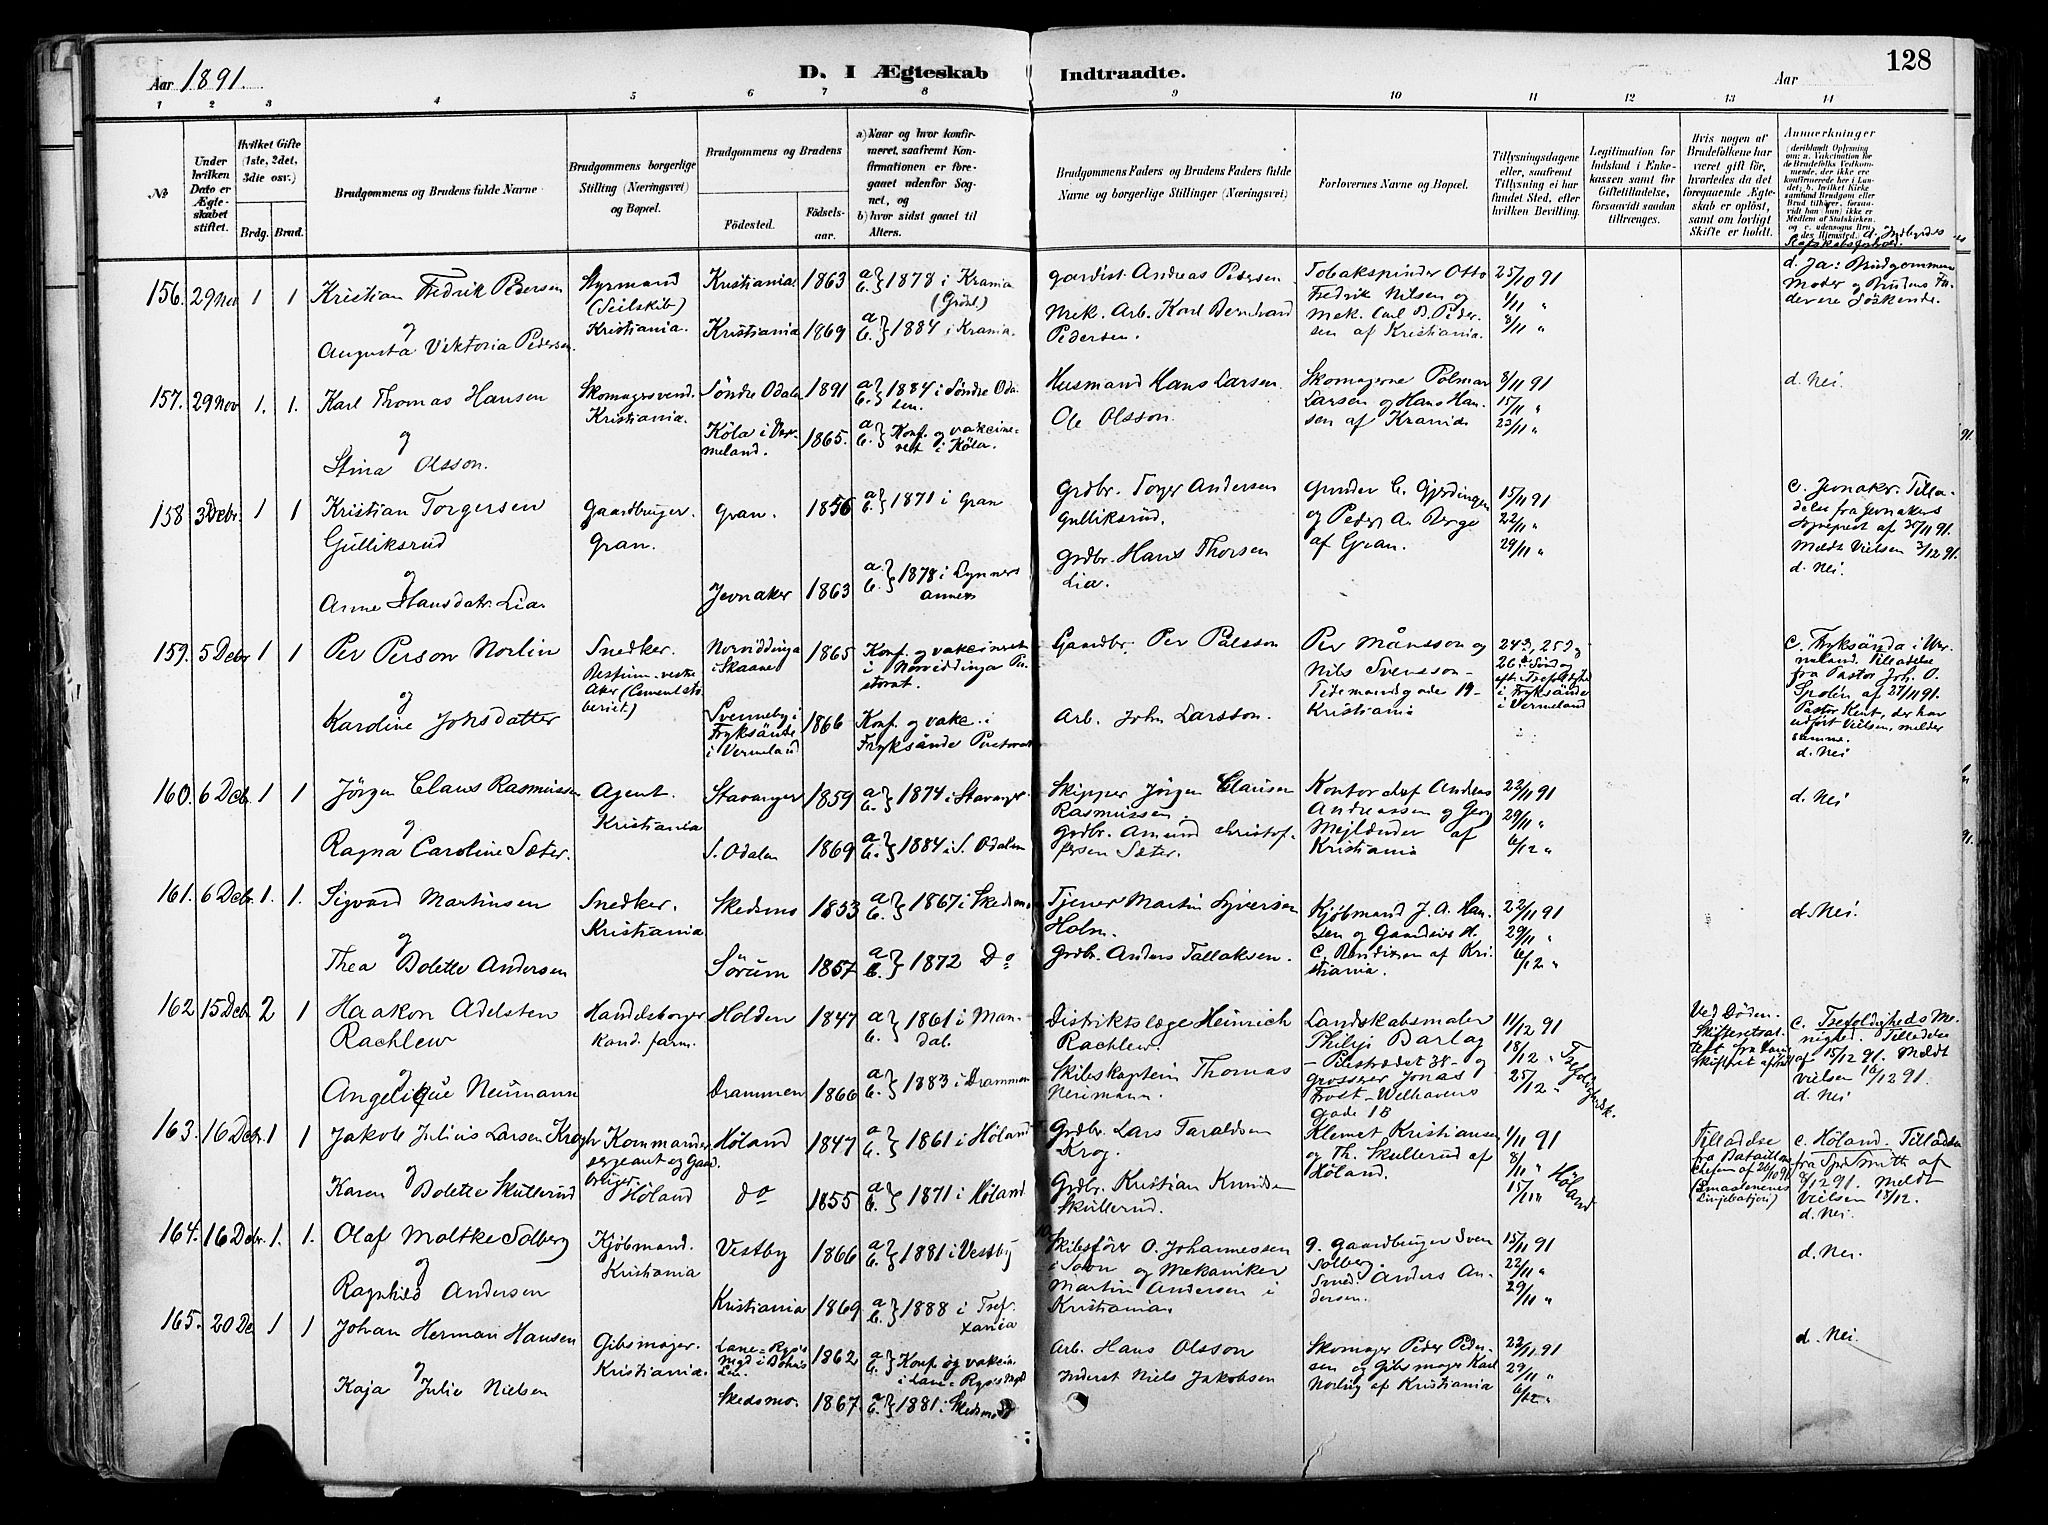 Aar 1891.
D. I Ægteskab Indtraadte.
Aar
128
1 2 3 4 5 6 7 8 9 10 11 12 13 14
No
Under hvilken Dato er Ægteskabet stiftet.
Hvilket Gifte (1ste, 2det, 3die osv.)
Brdg. Brud.
Brudgommens og Brudens fulde Navne
Brudgommens borgerlige Stilling (Næringsvei) og Bopæl.
Brudgommens og Brudens
Födested.
Födselsaar.
a) Naar og hvor konfirmeret, saafremt Konfirmationen er foregaaet udenfor Sognet, og
b) hvor sidst gaaet til Alters.
Brudgommens Faders og Brudens Faders fulde Navne og borgerlige Stillinger (Næringsvei)
Forlovernes Navne og Bopæl.
Tillysningsdagene eller, saafremt Tillysning ei har fundet Sted, efter hvilken Bevilling.
Legitimation for Indskud i Enkekassen samt for Giftetilladelse, forsaavidt saadan tiltrænges.
Hvis nogen af Brudefolkene har været gift før, hvorledes da det foregaaende Ægteskab er oplöst, samt om lovligt Skifte er holdt.
Anmerkninger (deriblandt Oplysning om: a. Vakcination for de Brudefolks Vedkommende, der ikke ere konfirmerede her i Landet; b. hvilket Kirkesamfund Brudgom eller Brud tilhører, forsaavidt han (hun) ikke er Medlem af Statskirken, og c. udensogns Brudes Hjemsted.
156. 29 Nov 1 1 Kristian Fredrik Pedersen
og
Augusta Viktoria Pedersen.
Styrmand
(Seilskib)
Kristiania.
Kristiania 1863 a b } 1878 i Krania
Kristiania 1869 a b } 1884 i Krania.
gardist. Andreas Pedersen
Mek. Arb. Karl Bernhard
Pedersen.
Tobakspinder Otto
Fredrik Nilsen og
Mek. Carl B. Peder-
sen af Kristiania.
25/10 91
1/11 "
8/11 "
d. Ja: Brudgommens
Moder og Brudens Fa-
der ere Söskende.
157. 29 Nov 1. 1. Karl Thomas Hansen
og
Stina Olsson.
Skomagersvend.
Kristiania.
Söndre Odalen 1891 a b } 1884 i Söndre Oda-
len.
Köla i Ver-
meland. 1865. a b } Konf. og vakcine-
ret i Köla.
Husmand Hans Larsen
Ole Olsson.
Skomagerne Polmar
Larsen og Hans Han-
sen af Krania
8/11 91
15/11 "
23/11 "
d. Nei.
158 3 Debr. 1 1 Kristian Torgersen
Gulliksrud
og
Anne Hansdatr. Lia.
Gaardbruger.
Gran.
Gran. 1856 a b } 1871 i Gran
Jevnaker 1863 a. b. } 1878 i Lynners
annex
Grdbr. Torger Andersen
Gulliksrud.
Grdbr. Hans Thorsen
Lia.
Gunder C. Gjerdingen
og Peder A. Berge
af Gran.
15/11 91
22/11 "
29/11 "
c. Jevnaker. Tilla-
delse fra Jevnakers
Sognepræst af 30/11 91.
Meldt Vielsen 3/12 91.
d. Nei.
159. 5 Debr 1 1 Per Person Norlin
og
Karoline Johsdatter
Snedker.
Bestum - vestre
Aker (Cementstö-
beriet)
Norviddinga
i Skaane 1865 Konf. og vakcineret
i Norviddinga Pa-
storat.
Svenneby i
Fryksände
i Vermeland 1866 Konf. og vakc. i
Fryksände Pastorat
Gaardbr. Per Pålsson
Arb. John Larsson.
Per Månsson og
Nils Svensson -
Tidemandsgade 19 -
Kristiania
i Fryksände
i Vermeland
c. Fryksända i Wer-
meland. Tilladelse
fra Pastor Joh. O.
Spolén af 27/11 91.
Pastor Kent, der har
udført Vielsen, melder
samme.
d. Nei
160. 6 Debr. 1 1 Jörgen Claus Rasmussen
og
Ragna Caroline Sæter.
Agent.
Kristiania
Stavanger 1859 a b } 1874 i Stavanger.
S. Odalen 1869 a b. } 1884 i S. Odalen
Skipper Jörgen Clausen
Rasmussen.
Grdbr. Amund Christof-
fersen Sæter.
Kontorchef Andreas
Andreassen og Georg
Mejlænder af
Kristiania
22/11 91
29/11 "
6/12 "
d. Nei
161. 6 Debr. 1. 1. Sigvard Martinsen
og
Thea Bolette Andersen
Snedker.
Kristiania
Skedsmo 1853 a b. } 1867 i Skedsmo
Sörum 1857 a b. } 1872 Do
Tjener Martin Syversen
Holm.
Grdbr. Anders Tallaksen.
Kjöbmand J. A. Han-
sen og Gaardeier H.
C. Bendixsen af Kri-
stiania.
22/11 91
29/11 "
6/12 "
d. Nei.
162 15 Debr 2 1 Haakon Adelsten
Rachlew
og
Angelique Neumann
Handelsborger
Kand. farm.
Holden 1847 a b. } 1861 i Man-
dal.
Drammen 1866 a b. } 1883 i Drammen
Distriktslæge Heinrich
Rachlew.
Skibskaptein Thomas
Neumann.
Landskabsmaler
Philip Barlag
- Pilestrædet 38 - og
grosserer Jonas
Frost - Welhavens
gade 1B
11/12 91
18/12 "
25/12 "
Ved Döden.
Skifteretsat-
test
c. Trefoldigheds Me-
nighed. Tilladelse
af 15/12 91. Meldt
Vielsen 16/12 91.
d. Nei
163. 16 Debr. 1 1 Jakob Julius Larsen Krogh
og
Karen Bolette Skullerud
Kommander-
sergeant og Gaard-
bruger.
Høland
Høland 1847 a b. } 1861 i Høland
do 1855 a b. } 1871 i Høland
Grdbr. Lars Taraldsen
Krog.
Grdbr. Kristian Knudsen
Skullerud.
Klemet Kristiansen
og Th. Skullerud af
Høland.
1/11 91
8/11 " Høland
15/11 "
Tilladelse
fra Bataillons-
chefen af 26/10 91
(Smaalenenes
Linjebataljon)
c. Høland. Tilladelse
fra Spr. Smith af
8/12 91. Meldt
Vielsen 18/12.
d. Nei.
164. 16 Debr. 1. 1. Olaf Moltke Solberg
og
Ragnhild Andersen
Kjöbmand.
Kristiania
Vestby 1866 a b. } 1881 i Vestby
Kristiania 1869. a b } 1888 i Tref.
xania
Skibsfører O. Johannessen
i Soon og Mekaniker
Martin Andersen i
Kristiania.
g. Gaardbruger Sven
Solberg.
Smed. Anders An-
dersen.
15/11 91
22/11 "
29/11 "
d. Nei.
165. 20 De 1 1 Johan Herman Hansen
og
Kaja Julie Nielsen
Gibsmager.
Kristiania.
Lane-Ryrs
1862 a b. } Konf. og vakcin.
i Lane-Ryrs Mgd
Skedsmo. 1867. a b. } 1881 i Skedsmo
Arb. Hans Olsson
Inderst Niels Jakobsen
Skomager Peder Peder-
sen og Gibsmager Karl
Norling af Kristiania
22/11 91
29/11 "
6/12 "
d. Nei.